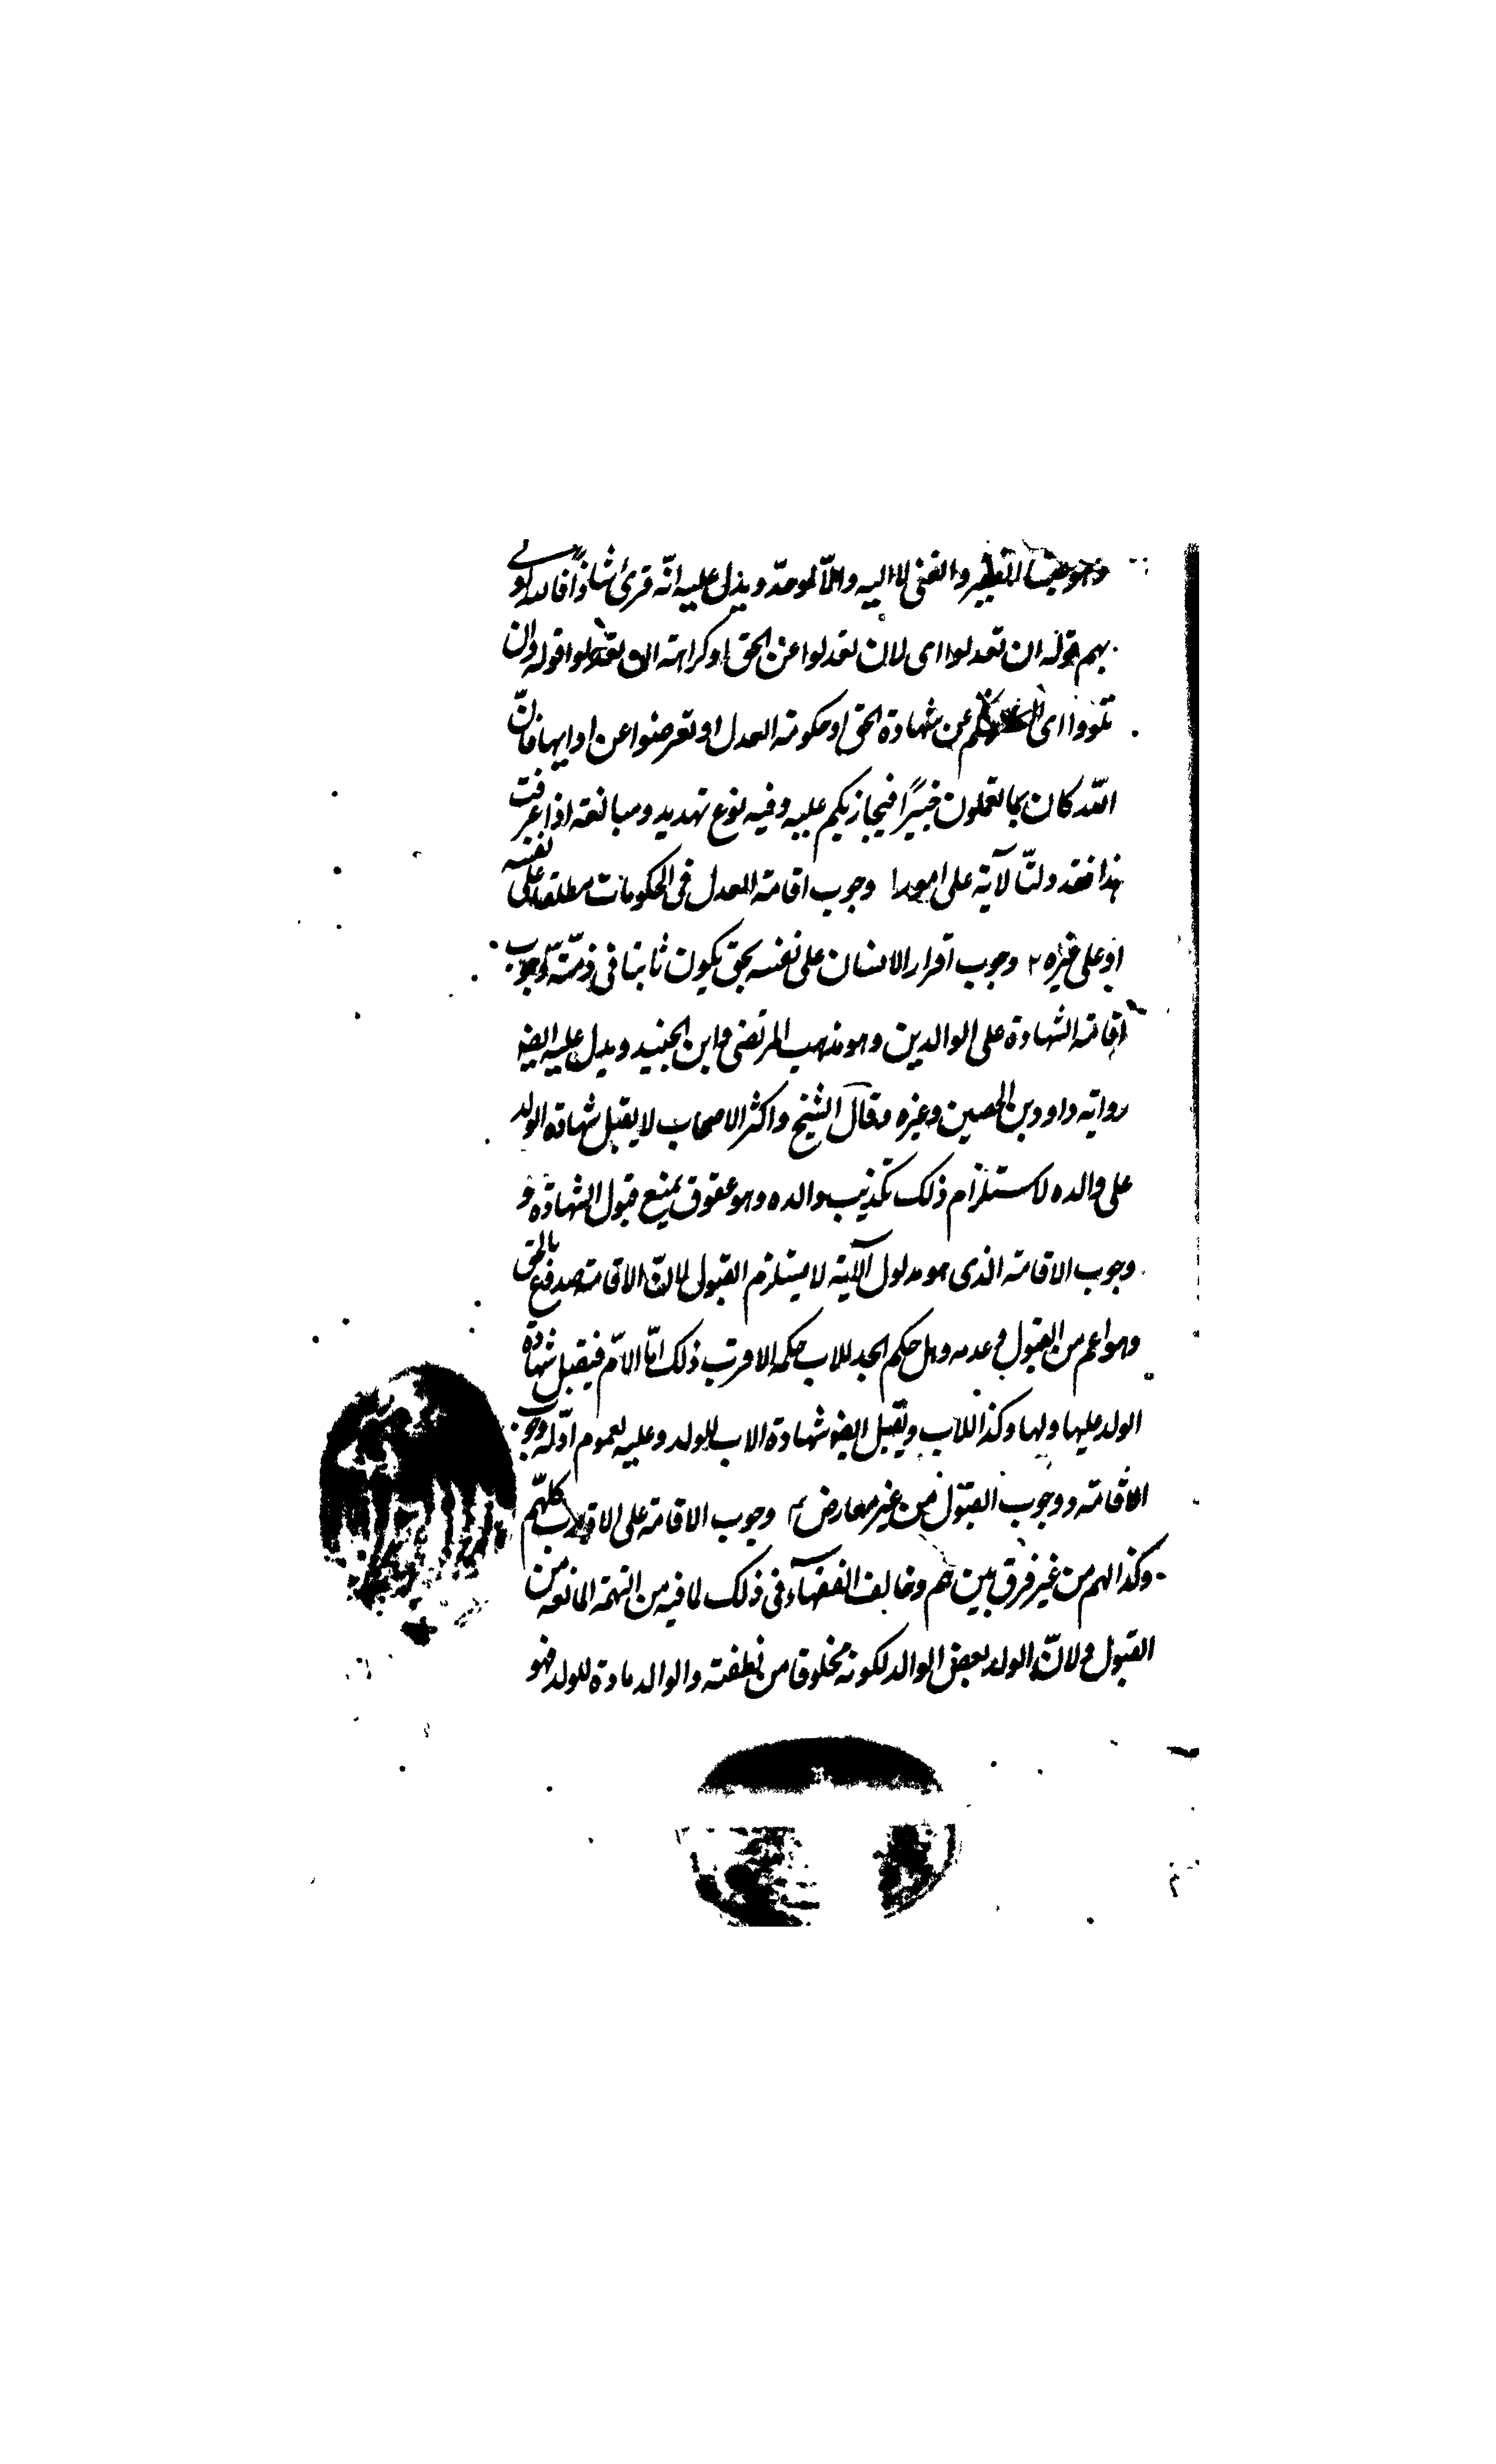 وهو جنسا الفقير والغنى لا اليه والا لوحد ويدل عليه انه قرئ شاذا فالله اولى
بهم قوله ان تعدلوا اى لان تعدلوا عن الحق او كراهة ان تعدلوا قوله وان
تلووا اى عن شهادة الحق او حكومة العدل او تعرضوا عن ادايها فان
الله كان بما تعملون خبيرا فيجازيكم عليه وفيه نوع تهديد ومبالغة اذا عرفت
هذا فقد دلت لآية على امور ا وجوب اقامة العدل فى الحكومات مطلقا على نفسه
او على غيره ٢ وجوب اقرار الانسان على نفسه بحق يكون ثابتا فى ذمته ٣ وجوب
اقامة الشهادة على الوالدين وهو مذهب المرتضى وابن الجنيد ويدل عليه ايضا
رواية داوود بن الحصين وغيره وقال الشيخ واكثر الاصحاب لا يقبل شهادة الولد
على والده لاستلزام ذلك تكذيب والده وهو عقوق يمنع قبول الشهادة و
وجوب الاقامة الذى هو مدلول الآية لا يستلزم القبول لان الاقامة صدع بالحق
وهو اعم من القبول وعدمه وهل حكم الجد للاب حكمه الاقرب ذلك امّا الامّ فيقبل شهادة
الولد عليها ولها وكذا للاب ويقبل ايضا شهادة الاب للولد وعليه لعموم ادلة وجوب
الاقامة ووجوب القبول من غير معارض ٤ وجوب الاقامة على الاقارب كلهم
وكذا لهم من غير فرق بين هم وخالف الفقهاء فى ذلك لما فيه من التهمة المانعة من
القبول ولان الولد بعض الوالد لكونه مخلوقا من نطفته والوالد مادة للولد فهو